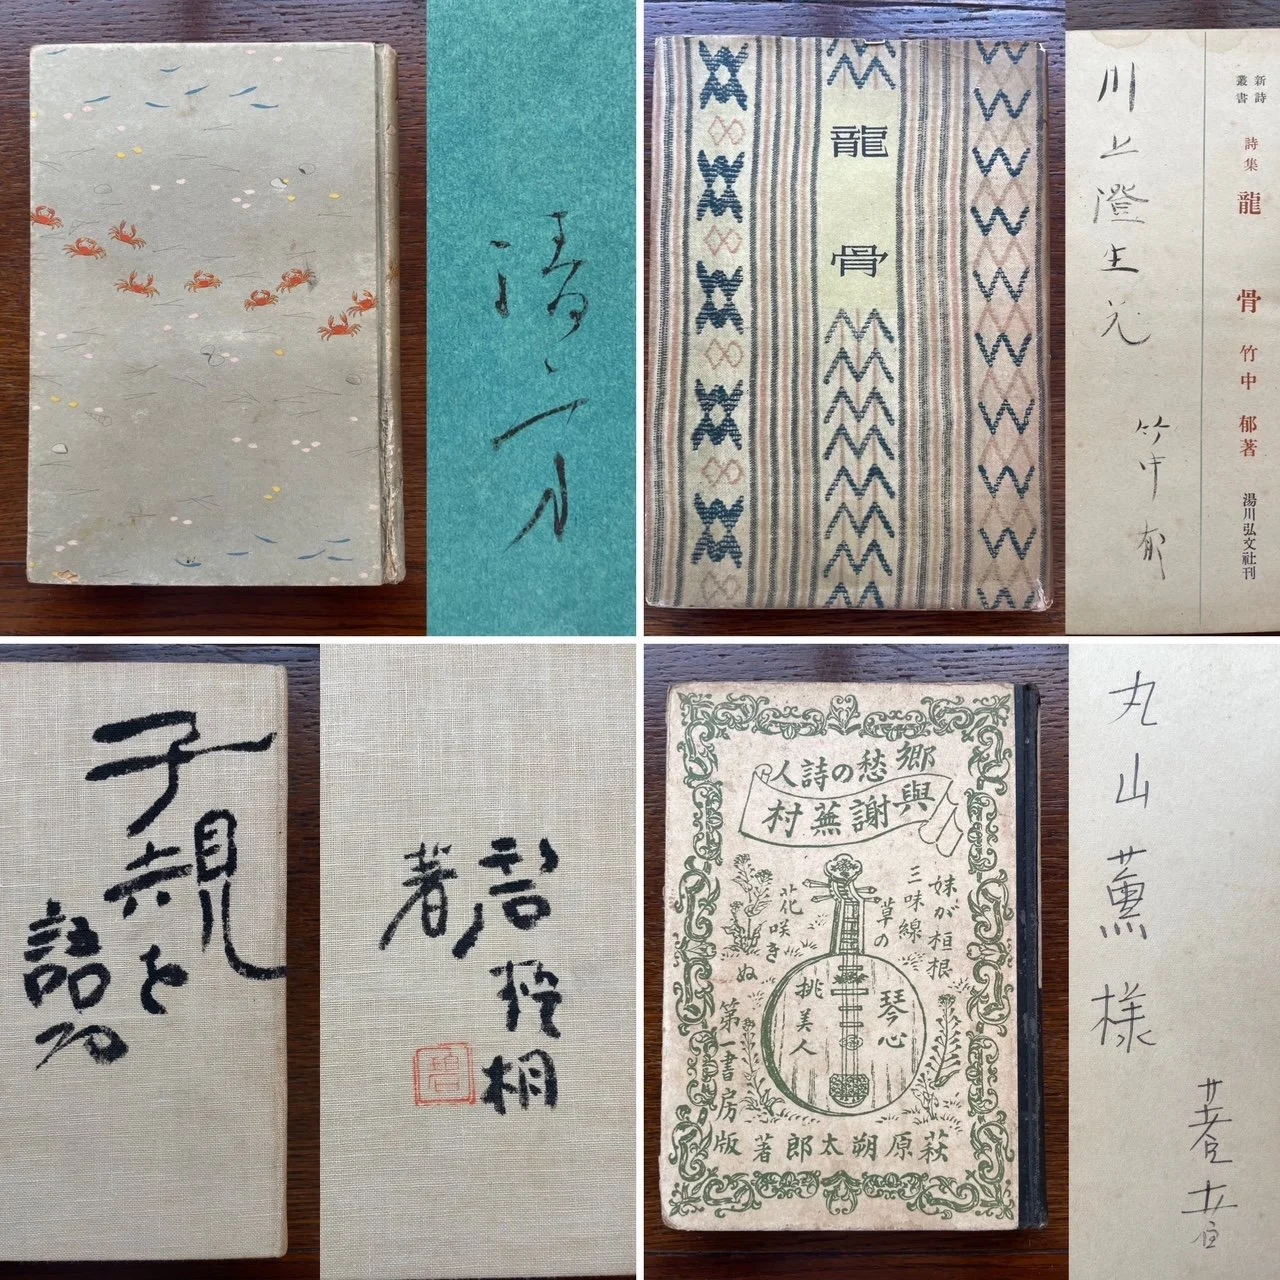 清方
龍骨
川上澄生兄
竹中郁
新詩
叢書
詩集 龍骨 竹中郁著
湯川弘文社刊
子規を
語る
碧梧桐
著
郷愁の詩人
與謝蕪村
妹が垣根
三味線
草の
花咲きぬ
琴心
挑美人
第一書房版
萩原朔太郎著
丸山薫様